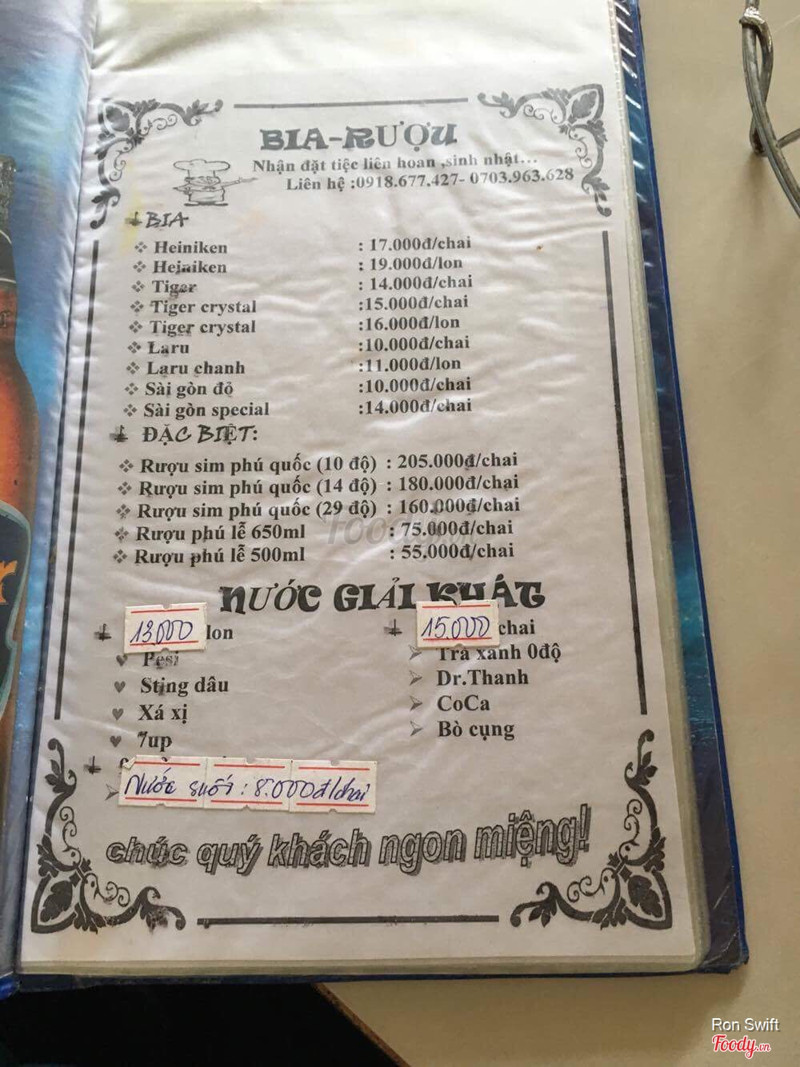 BIA-RƯỢU
Nhận đặt tiệc liên hoan ,sinh nhật...
Liên hệ :0918.677.427- 0703.963.628
BIA
Heiniken : 17.000đ/chai
Heiniken : 19.000đ/lon
Tiger : 14.000đ/chai
Tiger crystal :15.000đ/chai
Tiger crystal :16.000đ/lon
Laru :10.000đ/chai
Laru chanh :11.000đ/lon
Sài gòn đỏ :10.000đ/chai
Sài gòn special :14.000đ/chai
ĐẶC BIỆT:
Rượu sim phú quốc (10 độ) : 205.000đ/chai
Rượu sim phú quốc (14 độ) : 180.000đ/chai
Rượu sim phú quốc (29 độ) : 160.000đ/chai
Rượu phú lễ 650ml : 75.000đ/chai
Rượu phú lễ 500ml : 55.000đ/chai
NƯỚC GIẢI KHÁT
13.000 lon
Pesi
Sting dâu
Xá xị
7up
15.000 chai
Trà xanh 0độ
Dr.Thanh
CoCa
Bò cụng
Nước suối : 8.000đ/chai
chúc quý khách ngon miệng!
Ron Swift
Foody.vn